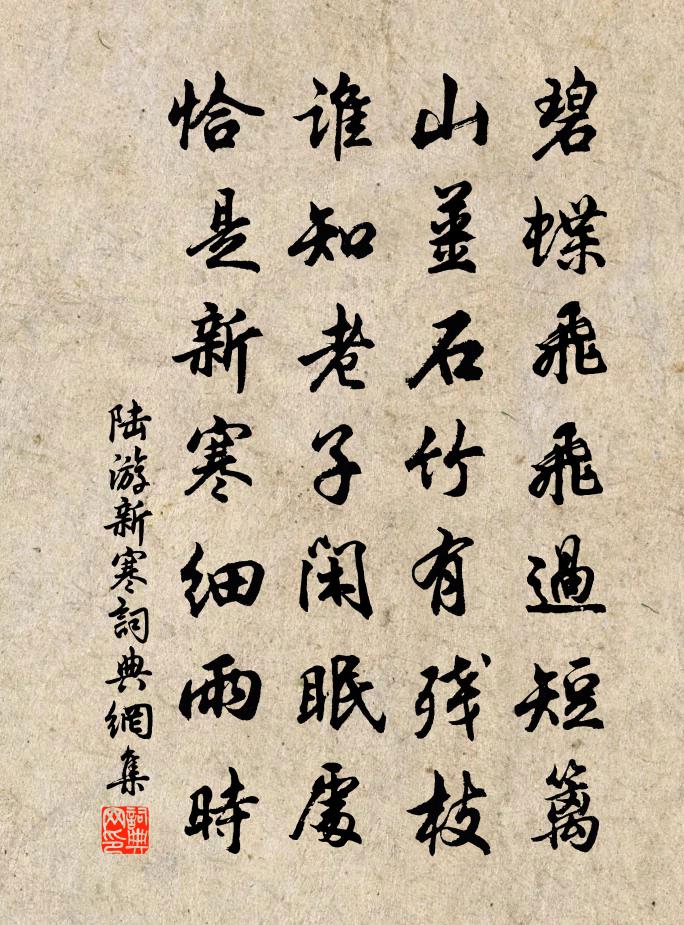 碧蝶飛飛過短篱
山薑石竹有残枝
誰知老子閑眠處
恰是新寒細雨時
陸游新寒詞典網集
詞典网印